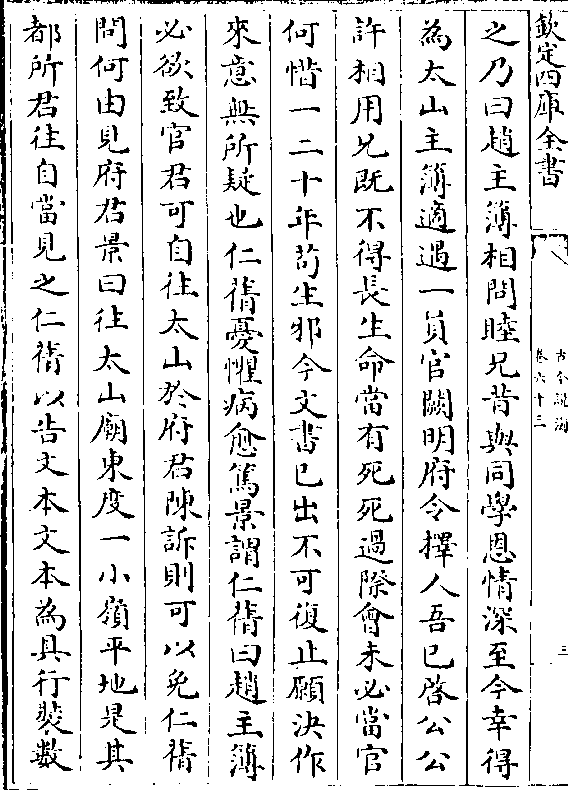 欽定四庫全書
古今說海
卷六十三
三
之乃曰趙主簿相問睦兄昔與同學恩情深至今幸得
為太山主簿適遇一員官闕明府令擇人吾已啓公公
許相用兄既不得長生命當有死死過際會未必當官
何惜一二十年苟生邪今文書已出不可復止願決作
來意無所疑也仁蒨憂懼病愈篤景謂仁蒨曰趙主簿
必欲致官君可自往太山於府君陳訴則可以免仁蒨
問何由見府君景曰往太山廟東度一小嶺平地是其
都所君往自當見之仁蒨以告文本文本為具行裝數